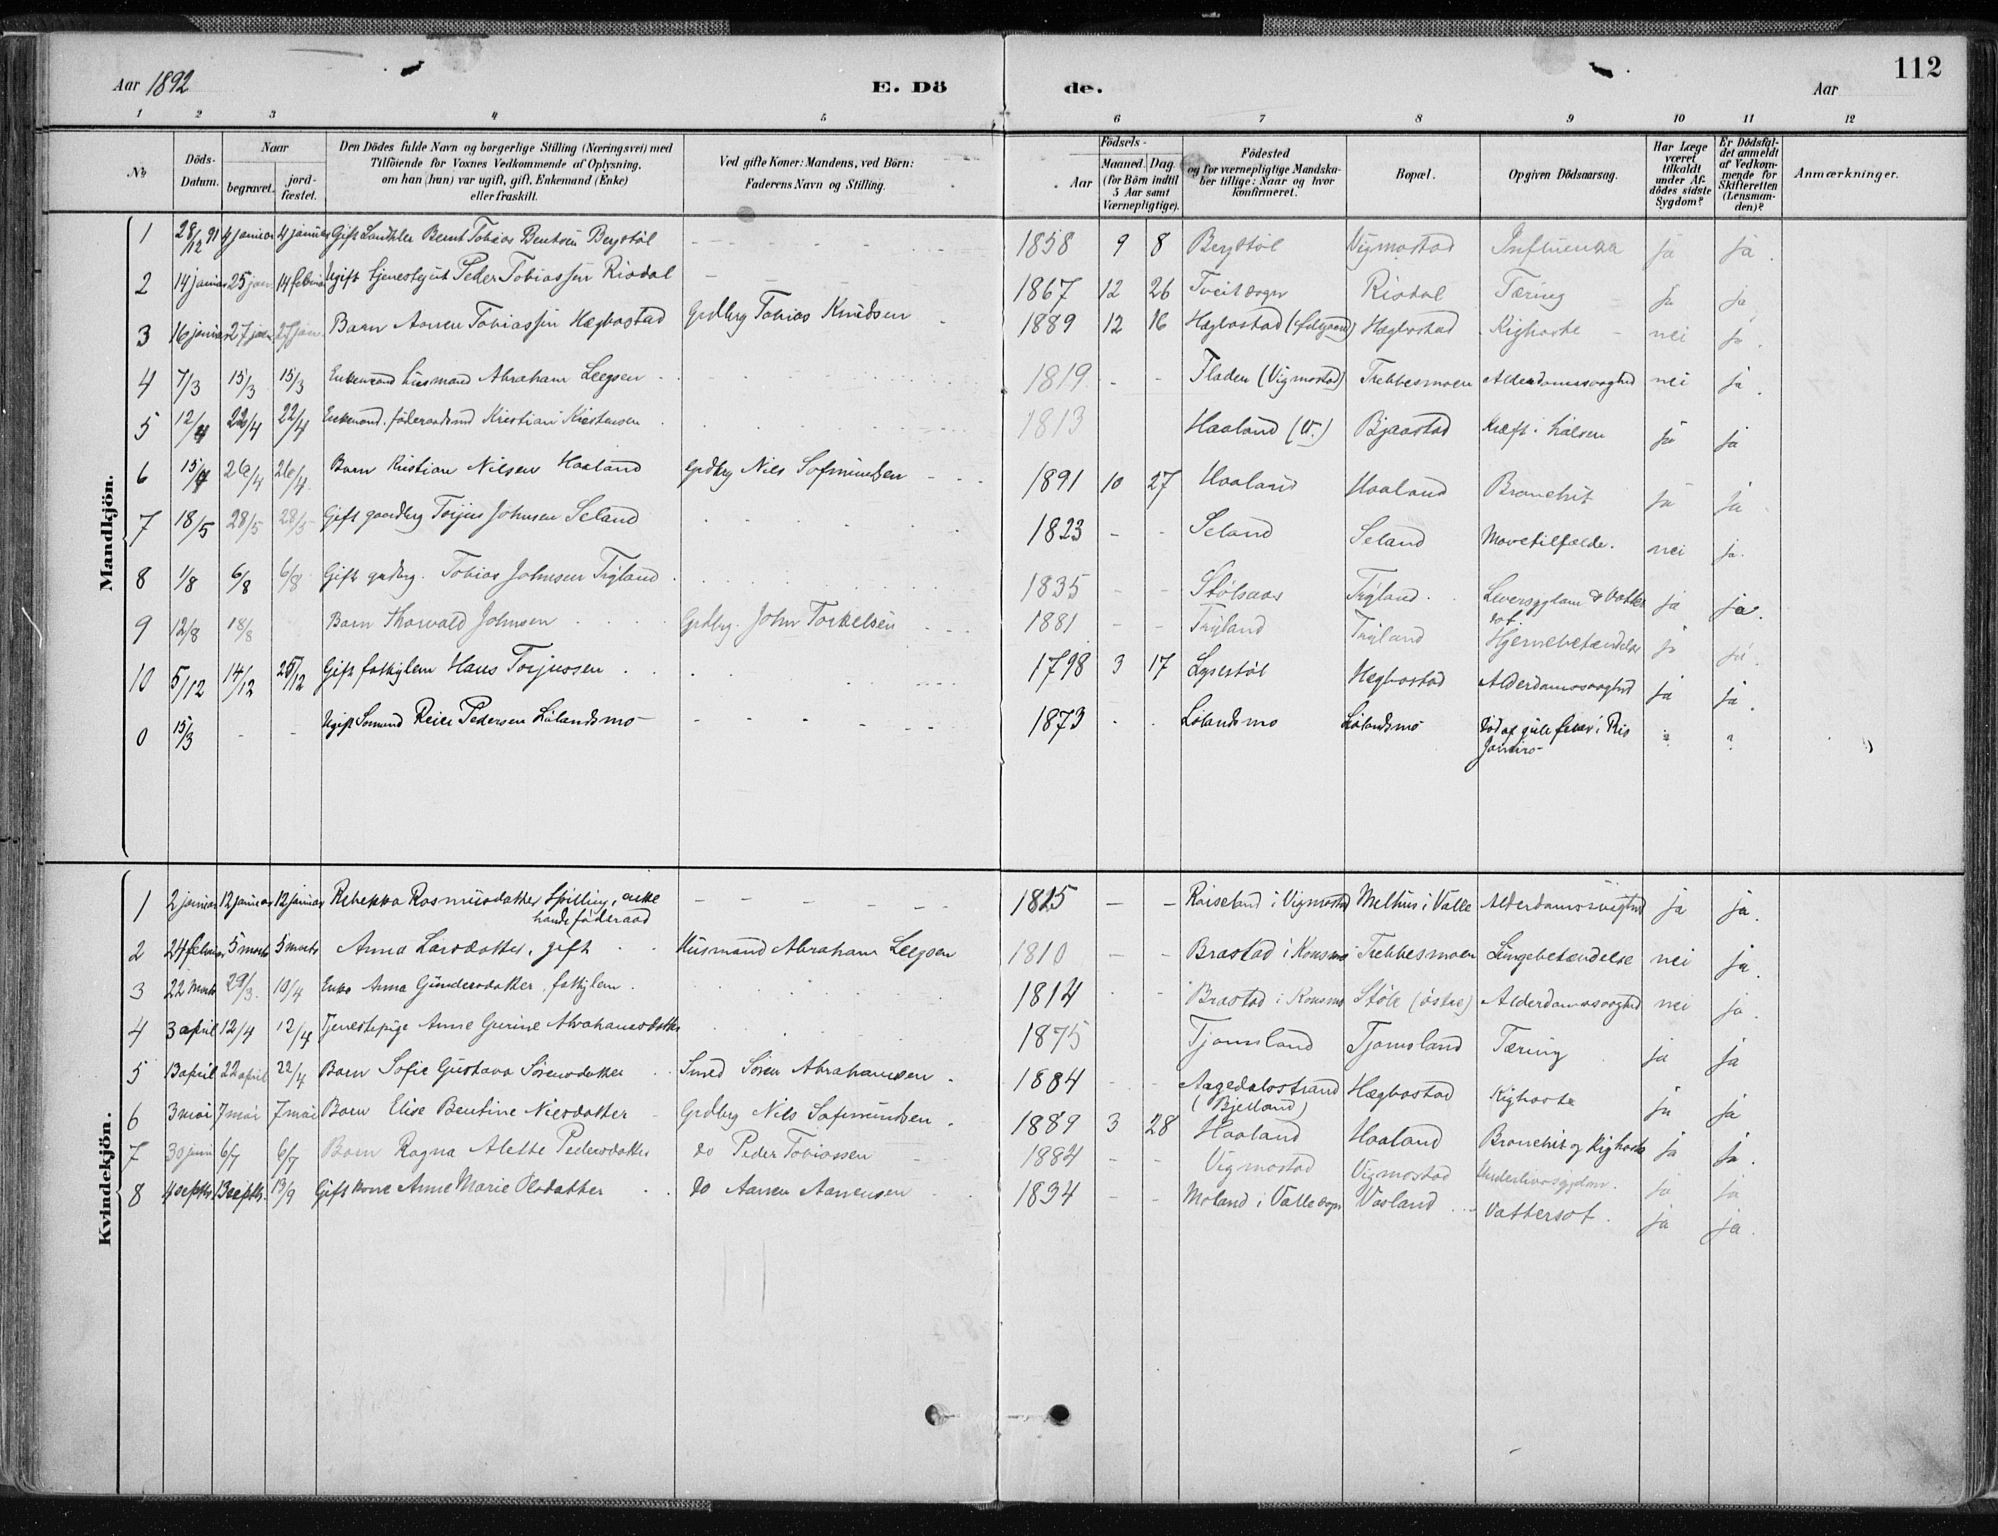 Aar 1892 E. Dö de. Aar 112
1 2 3 4 5 6 7 8 9 10 11 12
No
Döds-Datum.
Naar
begravet. jordfæstet.
Den Dödes fulde Navn og borgerlige Stilling (Næringsvei) med
Tilföiende for Voxnes Vedkommende af Oplysning,
om han (hun) var ugift, gift, Enkemand (Enke)
eller fraskilt.
Ved gifte Koner: Mandens, ved Börn:
Faderens Navn og Stilling.
Födsels-
Aar Maaned. Dag.
(for Börn indtil
5 Aar samt
Værnepligtige).
Födested
og for værnepligtige Mandskaber
tillige: Naar og hvor
konfirmeret.
Bopæl.
Opgiven Dödsaarsag.
Har Læge
været
tilkaldt
under Afdödes
sidste
Sygdom?
Er Dödsfaldet
anmeldt
af Vedkommende
for
Skifteretten
(Lensmanden)?
Anmærkninger.
Mandkjön.
1 28/12 91 4 januar 4 januar Gift Bernt Tobias Bentsen Bergstöl - - - 1858 9 8 Bergstöl Vigmostad Influensa ja ja.
2 14 januar 25 jan 14 februar Ugift tjenestegut Peder Tobiassen Risdal - 1867 12 26 Tveit sogn Risdal Tæring ja ja
3 16 januar 27 jan 27 jan. Barn Aanen Tobiassen Hægbostad Grdbrg Tobias Knudsen 1889 12 16 Hægbostad Hægbostad Kighoste nei ja.
4 7/3 15/3 15/3 Enkemand husmand Abraham Leegsen 1819 - - Fladen (Vigmostad) Trebbesmoen Alderdomssvaghed nei ja.
5 12/4 22/4 22/4 Enkemand. föderaadsmd Kristian Kristensen 1813 Haaland (V.) Bjaastad Kræft i halsen ja ja
6 15/4 26/4 26/4 Barn Kristian Nilsen Haaland Grdbrg Nils Sofmundsen - - - 1891 10 27 Haaland Haaland Bronchit ja ja
7 18/5 28/5 28/5 Gift gaardbrg Torjus Johnsen Seland 1823 - - Seland Seland Mavetilfælde. nei ja.
8 1/8 6/8 6/8 Gift grdbrg. Tobias Johnsen Trÿland 1835 - - Stölsaas Trÿland. Leversygdom & Vattersot. ja ja.
9 12/8 18/8 Barn Thorvald Johnsen Grdbrg. John Torkelsen 1881 - - Trÿland Trÿland Hjernebetændelse ja ja.
10 5/12 14/12 26/12 Gift fatkylem Hans Torjussen 1798 3 17 Lysestöl Hægbostad Alderdomssvaghed ja ja.
0 15/3 - - Ugift Sömand Reier Pedersen Lölandsmo - - - 1873 Lölandsmo Lölandsmo död af gule feber i Rio
Janeiro - ? ?
Kvindekjön.
1 2 januar 12 januar 12 januar Rebekka Rasmusdatter Spilling, enke
föderaad - - - 1825 - - Roiseland i Vigmostad Melhus i Valle Alderdomssvaghed ja ja.
2 24 februar 5 marts 5 marts Anna Larsdatter, gift Husmand Abraham Leegsen 1810 - - Brastad i Konsmo Trebbesmoen Lungebetændelse nei ja.
3 22 Marts 29/3. 10/4 Enke Anna Gundersdatter, fatkylem. 1814 Brastad i Konsmo Stöle (östre) Alderdomssvaghed nei ja.
4 3 april 12/4 12/4 Tjenestepige Anne Gurine Abrahamsdatter 1875 Tjomsland Tjomsland Tæring ja ja
5 13 april 22 april 22/4 Barn Sofie Gustava Sörensdatter Smed Sören Abrahamsen. 1884 - - Aagedalsstrand
(Bjelland) Hægbostad Kighoste ja ja
6 3 mai 7 mai 7 mai Barn Elise Bentine Nilsdatter Grdbrg Nils Sofmundsen. 1889 3 28 Haaland Haaland Bronchit og Kighoste ja ja.
7 30 juni 6/7 6/7 Barn Ragna Alette Pedersdatter do Peder Tobiassen 1884 - - Vigmostad Vigmostad Underlivssygdom. ja ja
8 4 septbr. 13 septbr. 13/9 Gift kone Anne Marie Olsdatter do Aanen Aanensen 1834 - - Moland i Valle sogn Vasland Vattersot. ja ja.